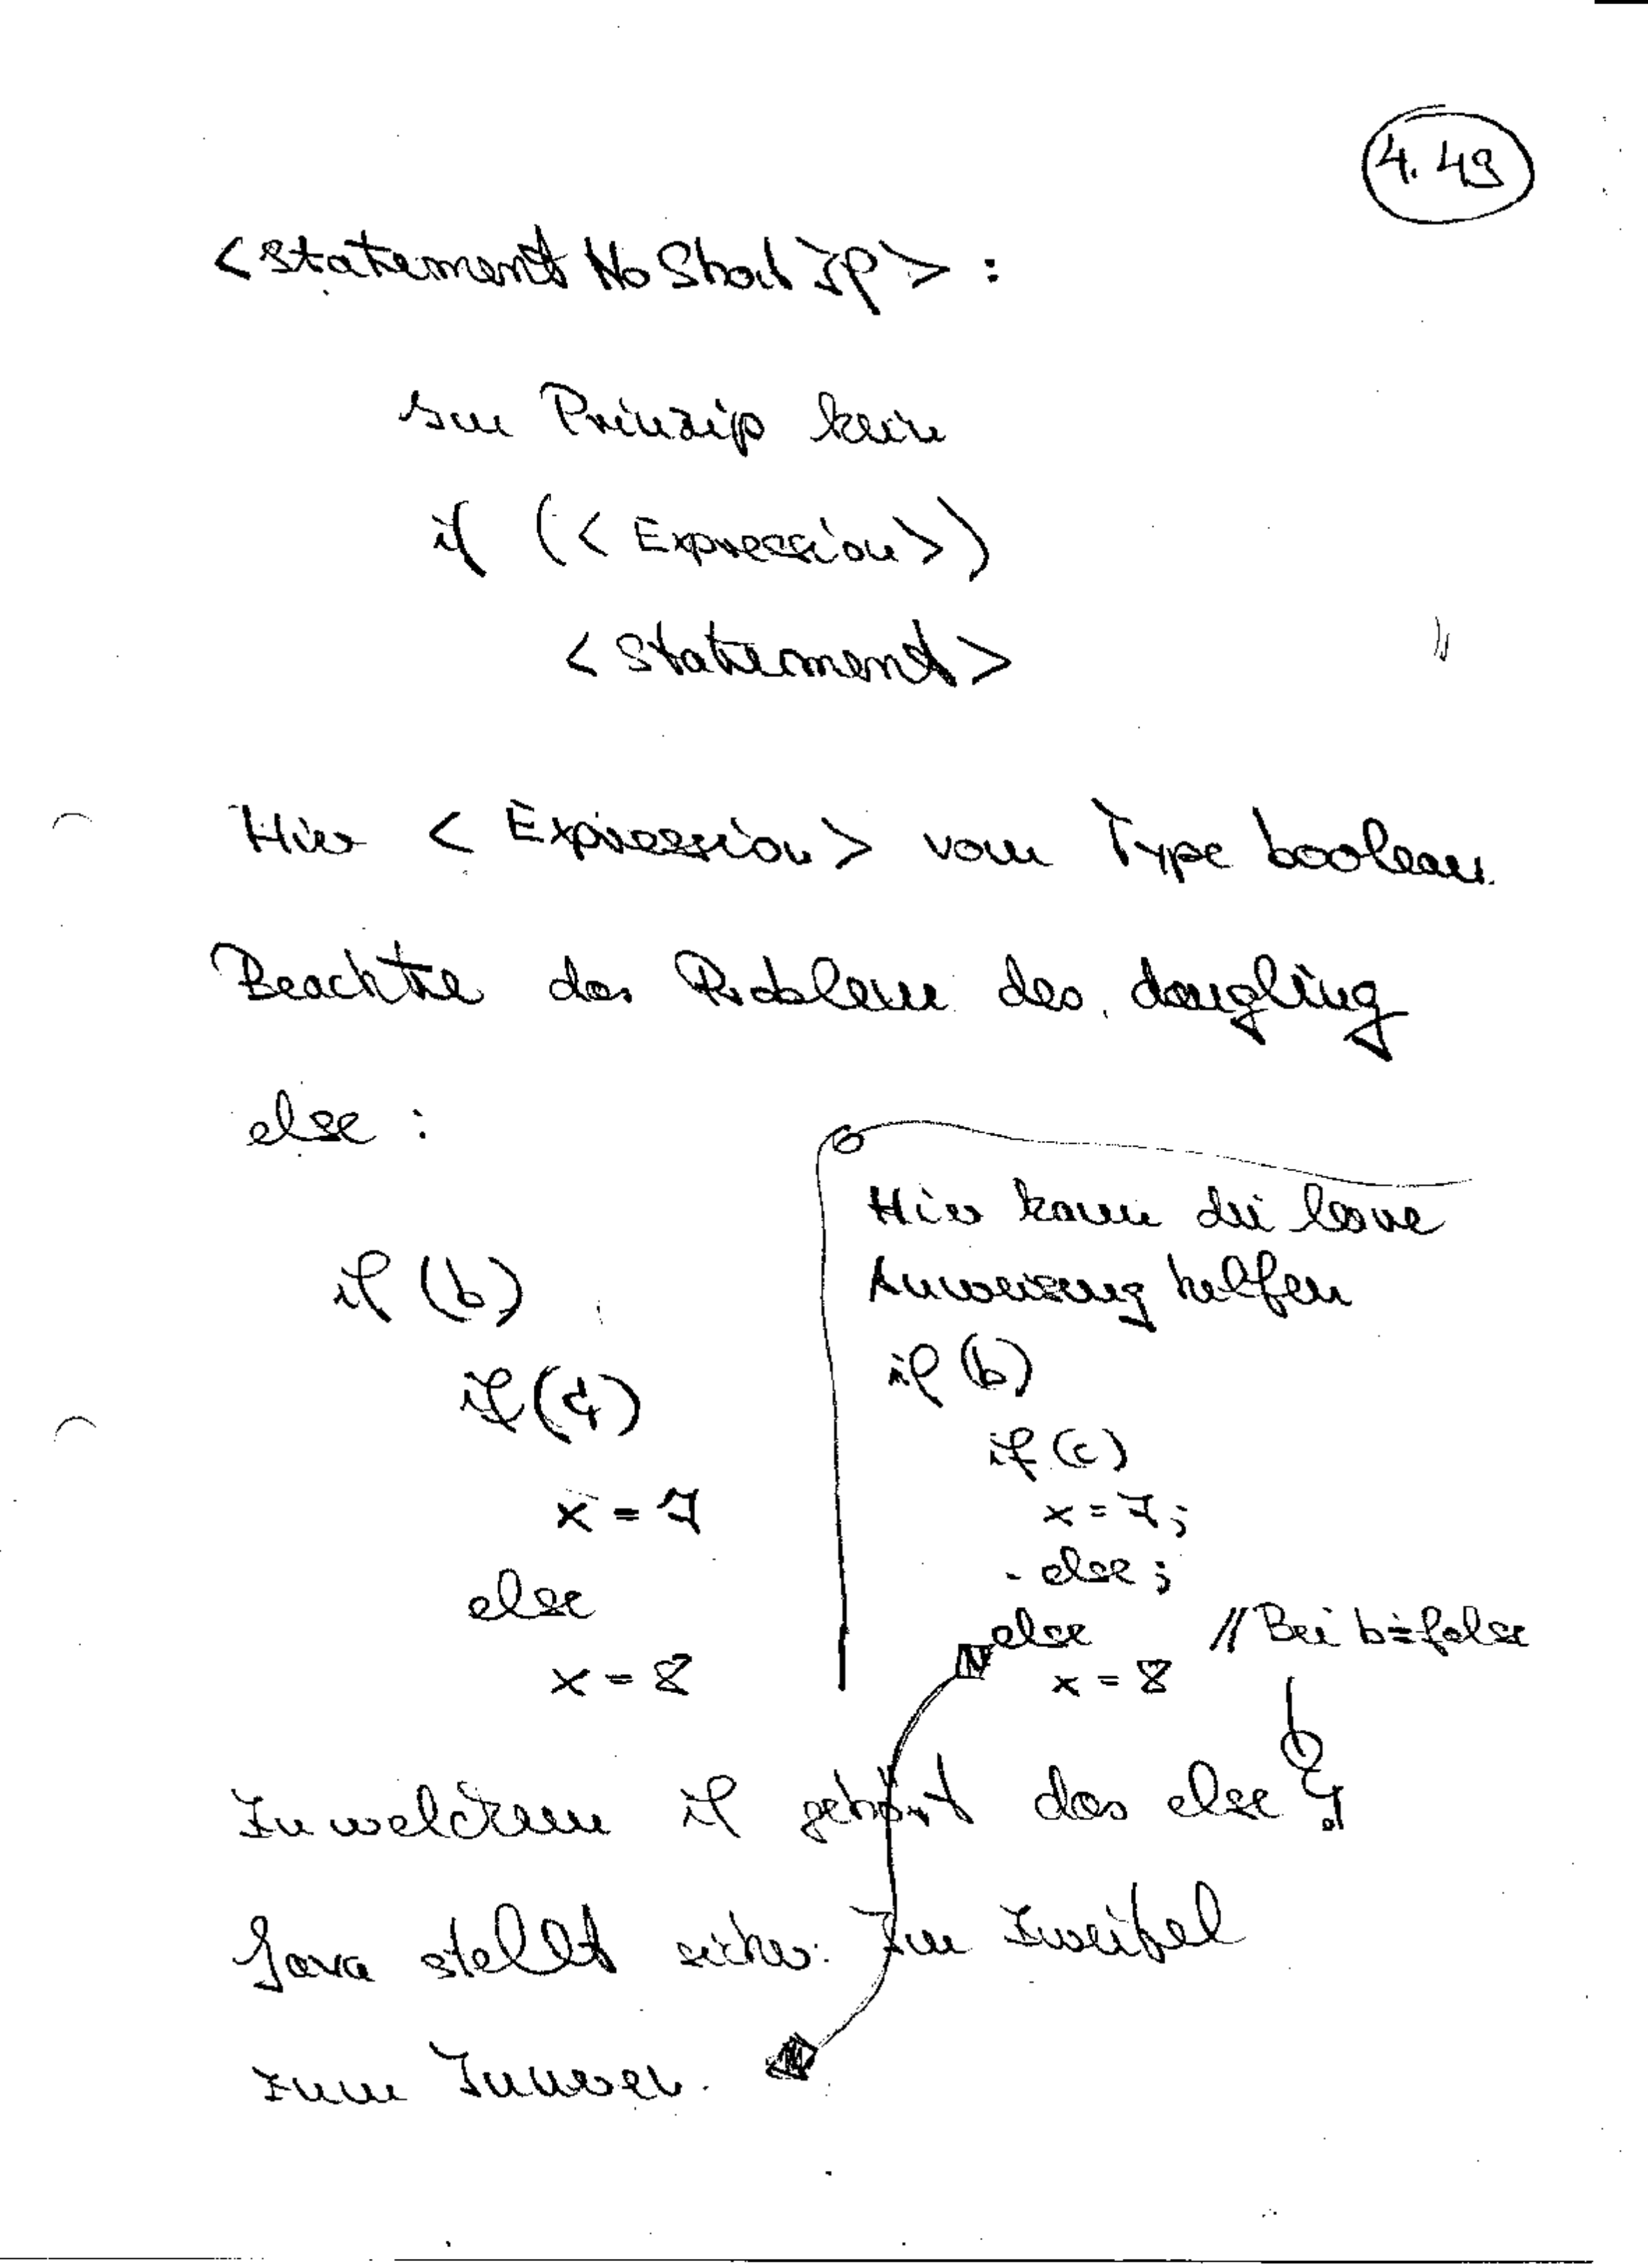 4.49
<Statement No Short If> :
Im Prinzip kein
if (< Expression>)
< Statement>
Hier < Expression> vom Type boolean.
Beachte das Problem des dangling
else :
if (b)
if (c)
x = 7
else
x = 8
Hier kann die leere
Anweisung helfen
if (b)
if (c)
x = 7;
else;
else // Bei b = false
x = 8
Zu welchem if gehört das else ?
Java stellt sicher: Im Zweifel
zum Inneren.